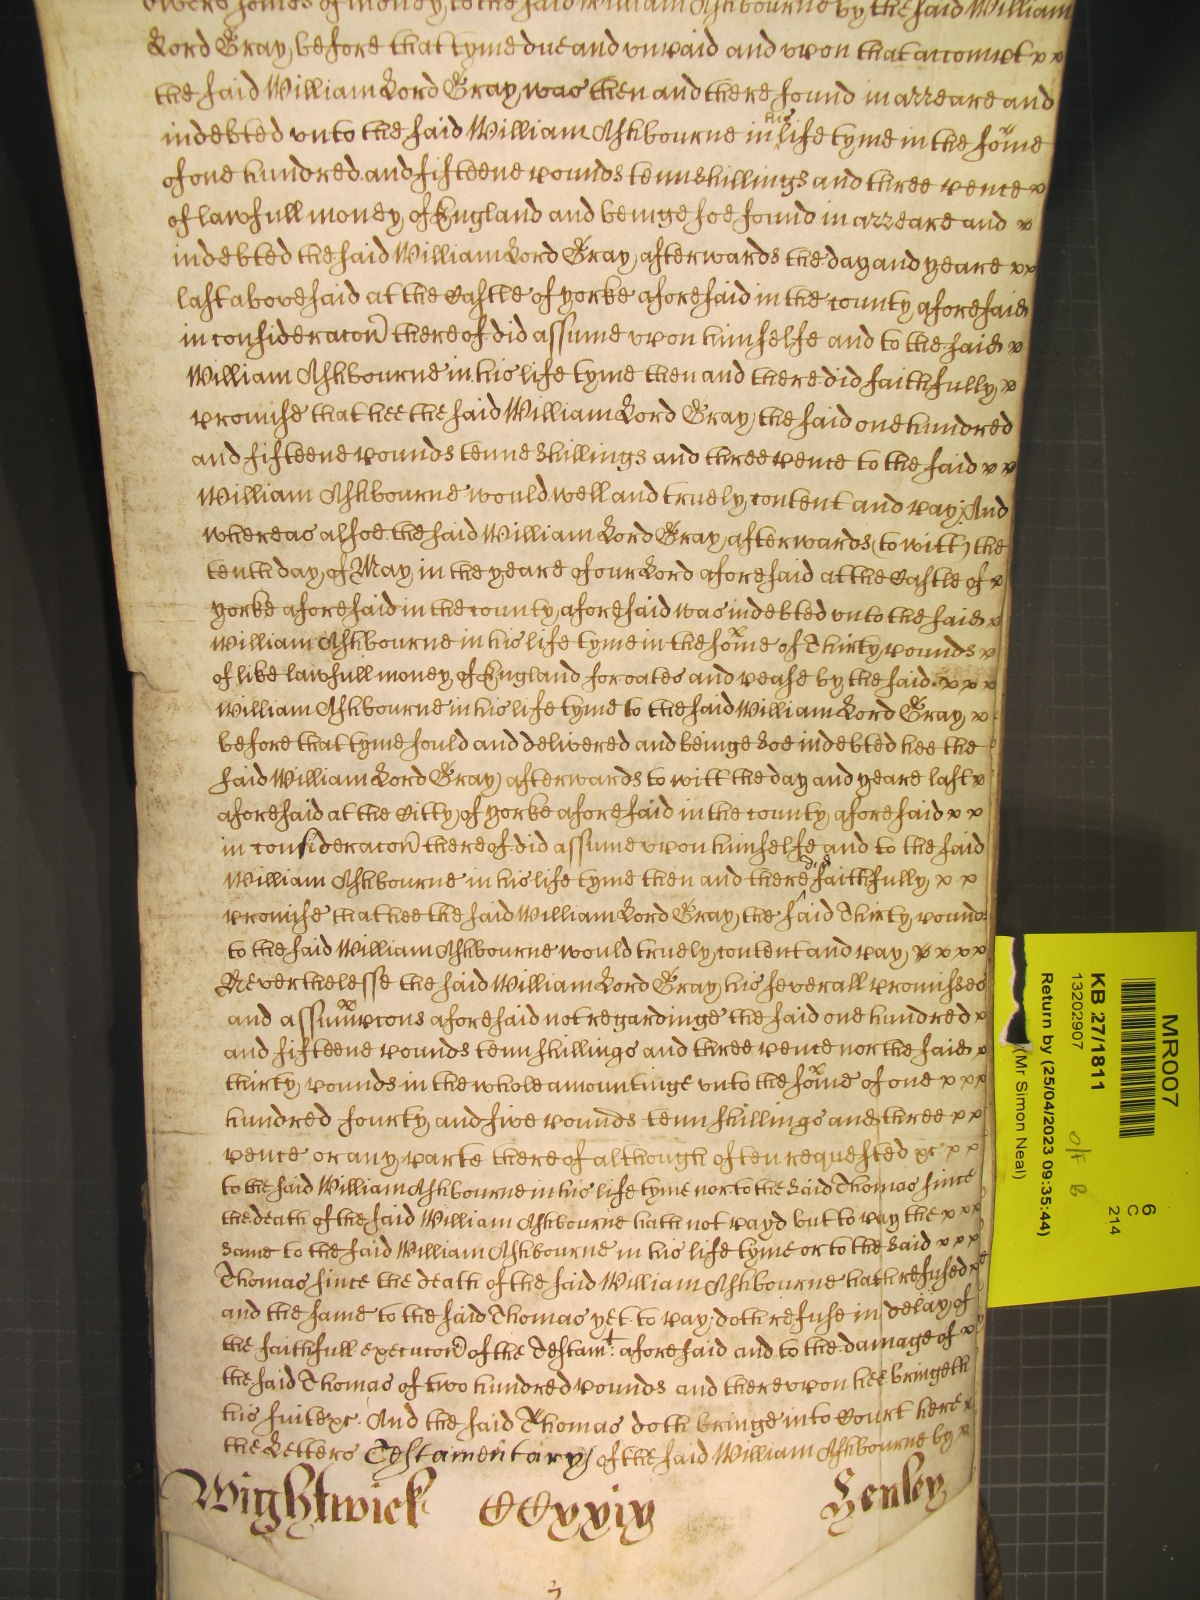 somes of money, to the said William Ashbourne by the said William
Lord Gray, before that tyme due and unpaid and upon that accompt x x
the said William Lord Gray was then and there found in arreare and
indebted unto the said William Ashbourne in his life tyme in the some
of one hundred and fifteene pounds tenn shillings and three pence x
of lawfull money of England and beinge soe found in arreare and x
indebted the said William Lord Gray, afterwards the day and yeare x x
last abovesaid at the Castle of yorke aforesaid in the county aforesaid
in consideracon thereof did assume upon himselfe and to the said x
William Ashbourne in his life tyme then and there did faithfully x
promise that hee the said William Lord Gray, the said one hundred
and fifteene pounds tenne shillings and three pence to the said x x
William Ashbourne would well and truely content and pay; And
whereas alsoe the said William Lord Gray, afterwards (to witt) the
tenth day of May in the yeare of our Lord aforesaid at the Castle of x
yorke aforesaid in the county, aforesaid was indebted unto the said x
William Ashbourne in his life tyme in the some of Thirty pounds x
of like lawfull money of England for oates and pease by the said x x x
William Ashbourne in his life tyme to the said William Lord Gray, x
before that tyme sould and delivered and beinge soe indebted hee the
said William Lord Gray) afterwards to witt the day and yeare last x
aforesaid at the Citty of yorke aforesaid in the county aforesaid x x
in consideracon thereof did assume upon himselfe and to the said
William Ashbourne in his life tyme then and there did faithfully x x
promise that hee the said William Lord Gray, the said Thirty pounds
to the said William Ashbourne would truely content and pay, x x x x
Neverthelesse the said William Lord Gray his severall promisses
and assumpcons aforesaid not regardinge the said one hundred x
and fifteene pounds tenn shillings and three pence nor the said x
thirty pounds in the whole amountinge unto the some of one x x x
hundred fourty and five pounds tenn shillings and three x x
pence or any parte thereof although often requested &c x x
to the said William Ashbourne in his life tyme nor to the said Thomas since
the death of the said William Ashbourne hath not payd but to pay the x x x
same to the said William Ashbourne in his life tyme or to the said x x x
Thomas since the death of the said William Ashbourne hath refused x
and the same to the said Thomas yet to pay doth refuse in delay of
the faithfull execucon of the Testamt. aforesaid and to the damage of x
the said Thomas of two hundred pounds and thereupon hee bringeth
his suite &c. And the said Thomas doth bringe into Court here x
the Letters Testamentary of the said William Ashbourne by x
Wightwick CCxxix Henley
MR007
KB 27/1811
13202907
Return by (25/04/2023 09:35:44)
(Mr Simon Neal)
6
C
214